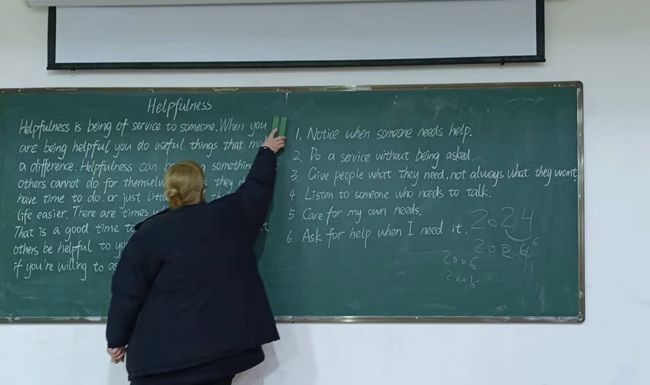 Helpfulness
Helpfulness is being of service to someone. When you
are being helpful you do useful things that
a difference. Helpfulness can something
others cannot do for themsel they
have time to do, or just littl
life easier. There are times
That is a good time to
others be helpful to yo
if you're willing to as
1. Notice when someone needs help.
2. Do a service without being asked.
3 Give people what they need, not always what they want.
4 Listen to someone who needs to talk.
5 Care for my own needs.
6. Ask for help when I need it.
2024